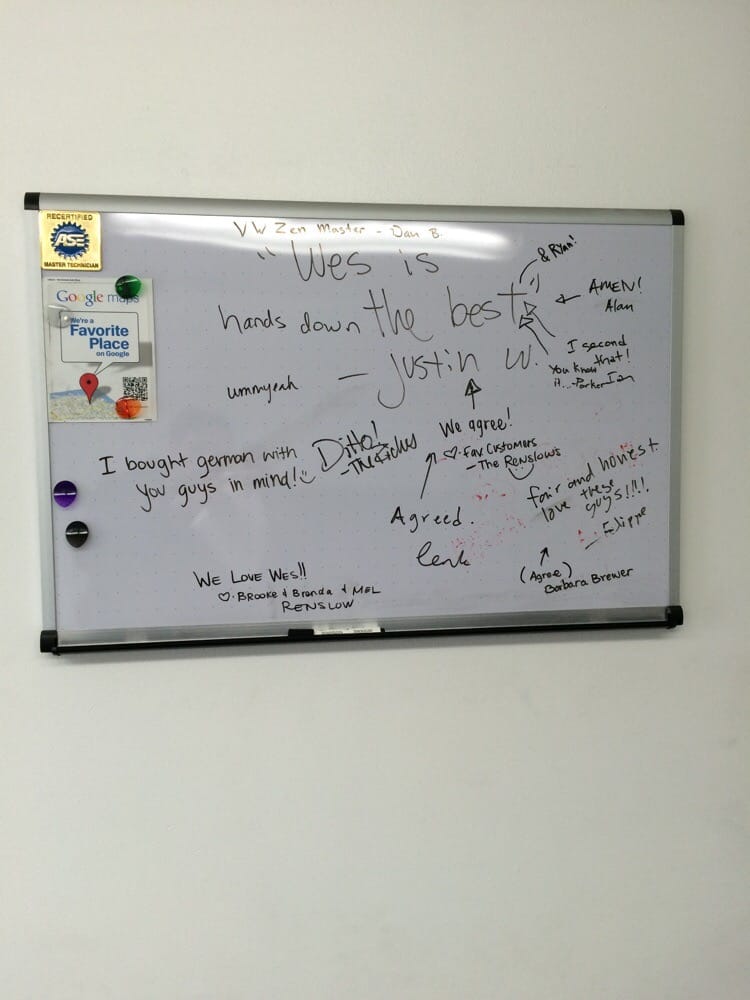 VW Zen Master - Dan B.
"Wes is
hands down the best"
- Justin W.
& Ryan!
AMEN!
Alan
I second
that!
Ian
You know
it...-Parker
ummyeah
We agree!
♡. Fav Customers
- The Renslows
I bought german with
you guys in mind!
Ditto!
Agreed.
fair and honest
love these
guys!!!!
(Agree)
Barbara Brewer
WE LOVE WES!!
♡. BROOKE & Brenda & MEL
RENSLOW
RECERTIFIED
ASE
MASTER TECHNICIAN
Google maps
We're a
Favorite
Place
on Google